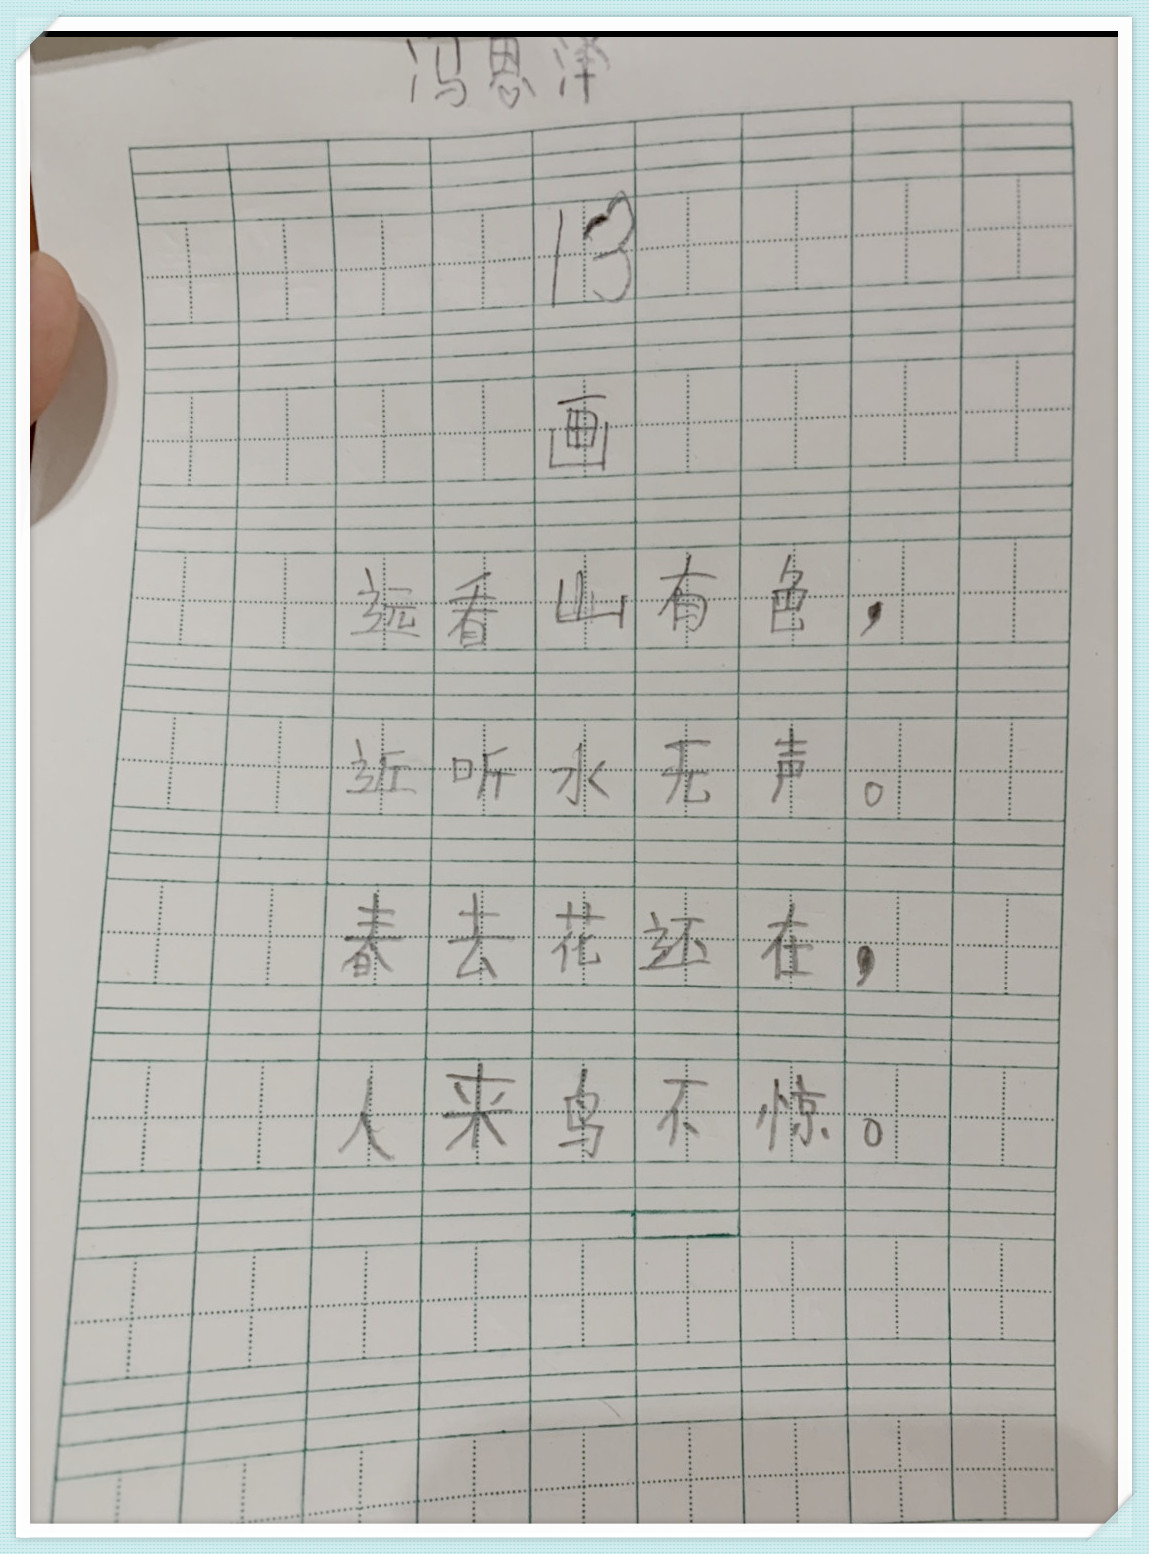 冯思泽
13
画
远看山有色，
近听水无声。
春去花还在，
人来鸟不惊。